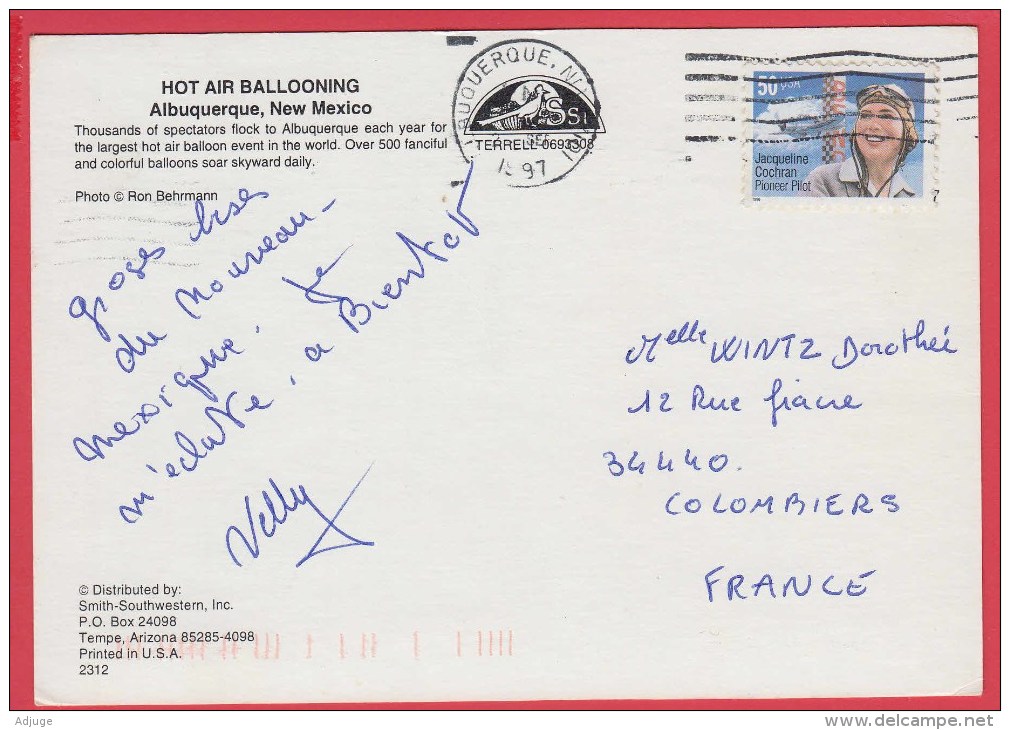 HOT AIR BALLOONING
Albuquerque, New Mexico
Thousands of spectators flock to Albuquerque each year for
the largest hot air balloon event in the world. Over 500 fanciful
and colorful balloons soar skyward daily.
Photo © Ron Behrmann
SSI
TERRELL 0693308
ALBUQUERQUE, NM
SEP
97
871
50 USA
Jacqueline
Cochran
Pioneer Pilot
groses bises
du nouveau-
mexique. Je
m'eclate, a Bientot
Nelly
Melle WINTZ Dorothée
12 Rue fiacre
34440.
COLOMBIERS
FRANCE
© Distributed by:
Smith-Southwestern, Inc.
P.O. Box 24098
Tempe, Arizona 85285-4098
Printed in U.S.A.
2312
Adjuge
www.delcampe.net